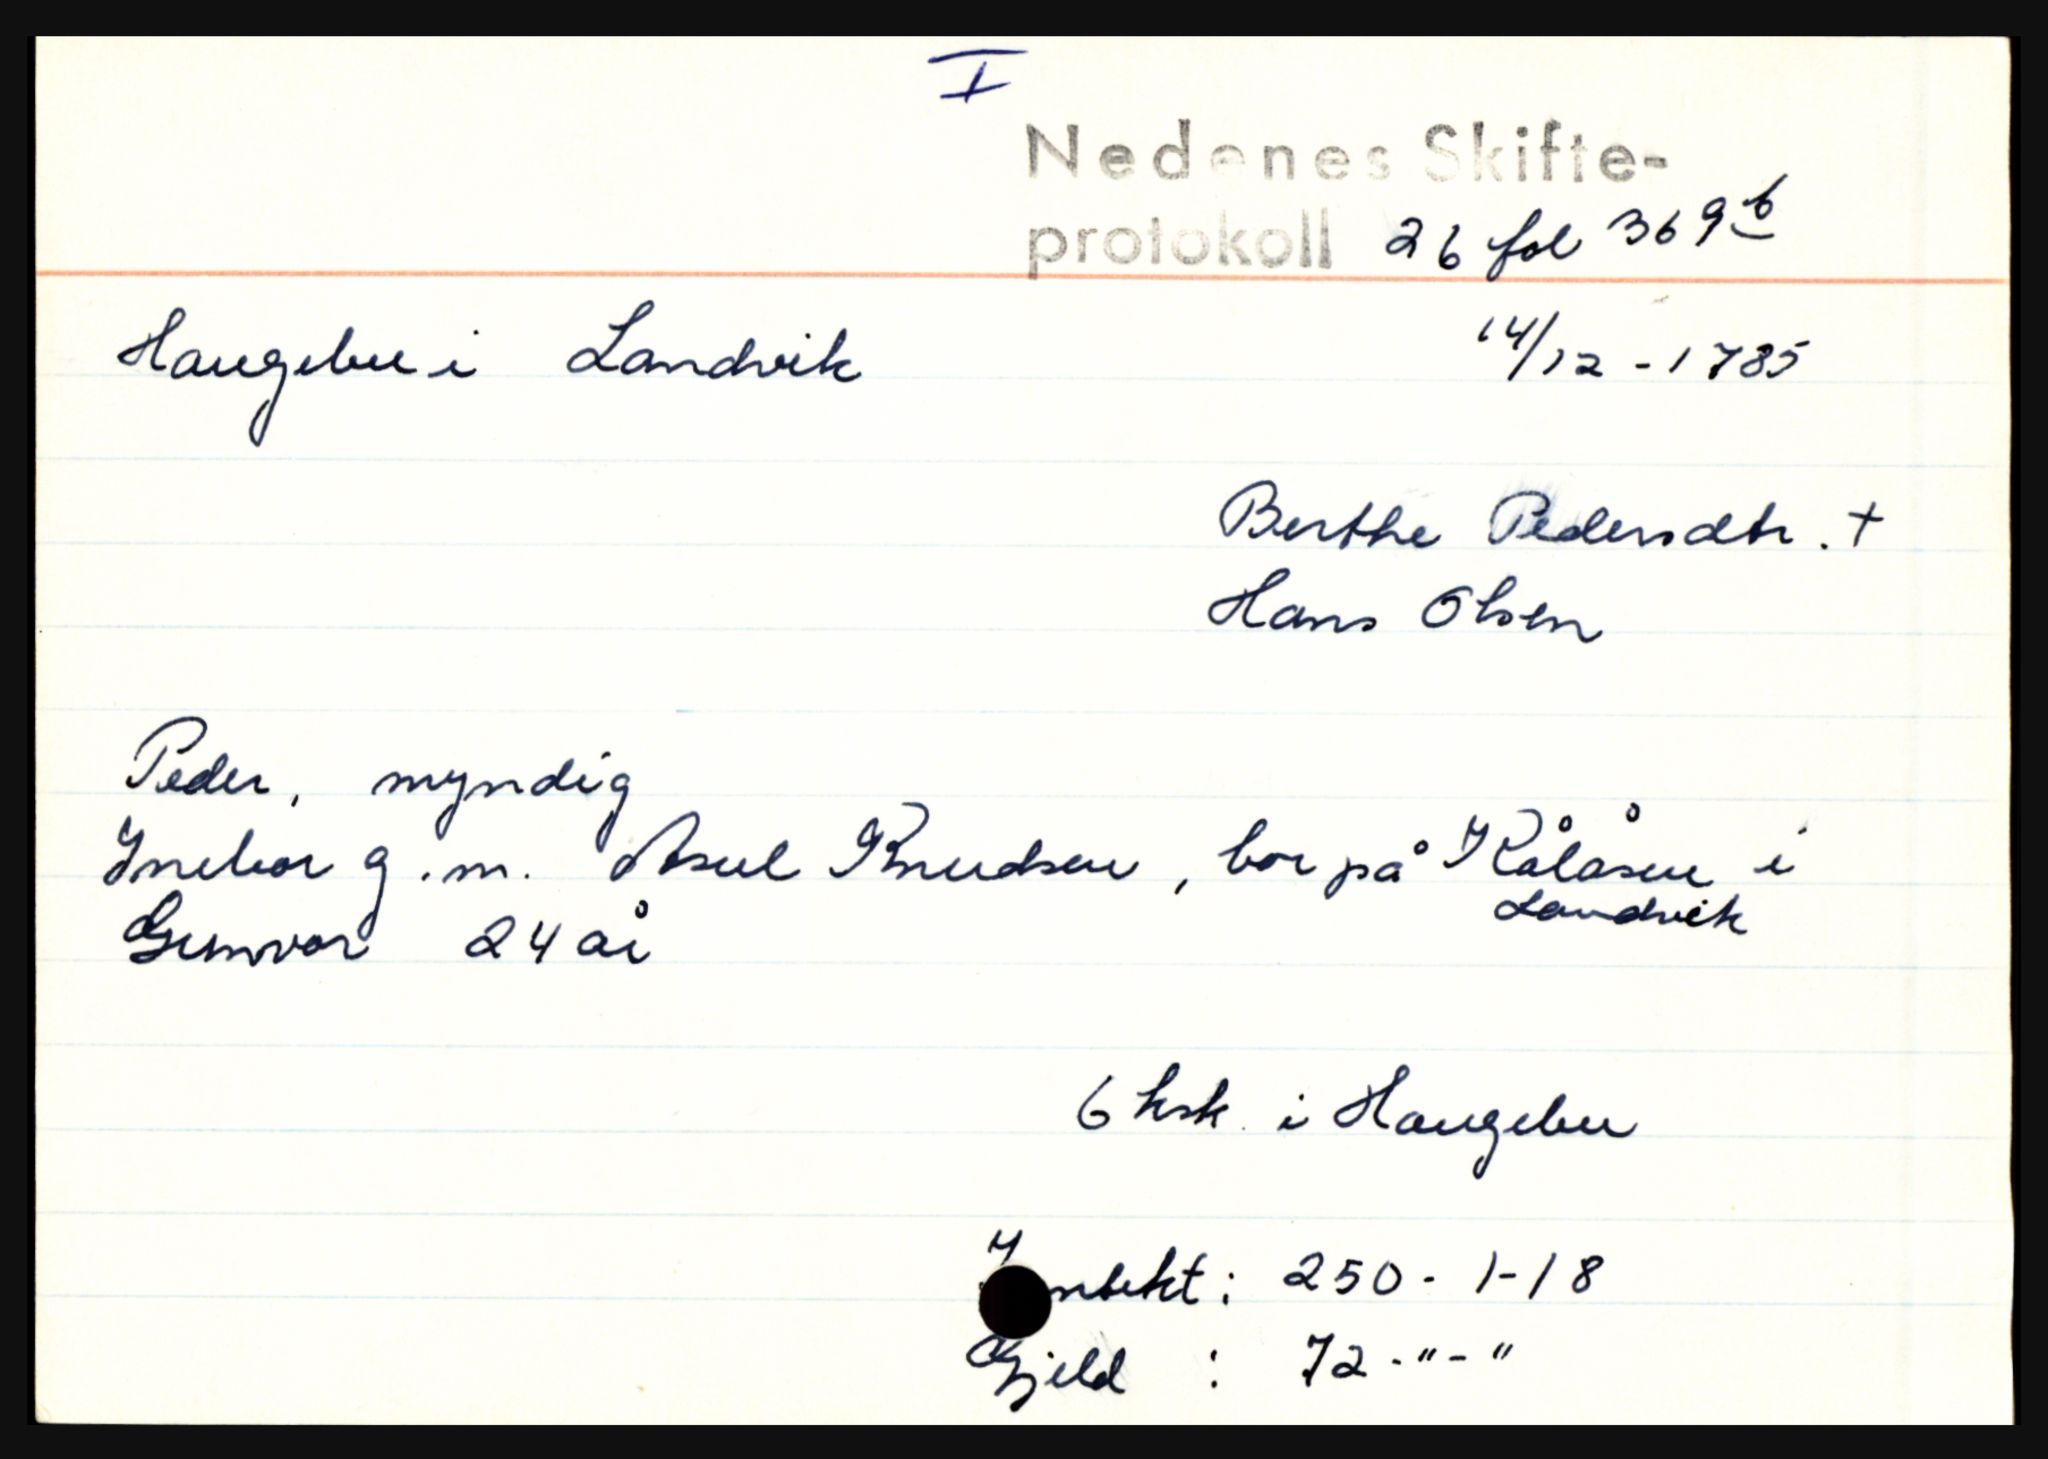 I
Nedenes Skifte-
protokoll 26 fol 369 b
Haugebu i Landvik 14/12 - 1785
Berthe Pedersdtr. +
Hans Olsen
Peder, myndig
Inebor g.m. Asul Knudsen, bor på Kålåsen i
Landvik
Gunvor 24 år
6 ksk. i Haugebu
Inntekt: 250 - 1 - 18
Gjeld : 72 - " - "